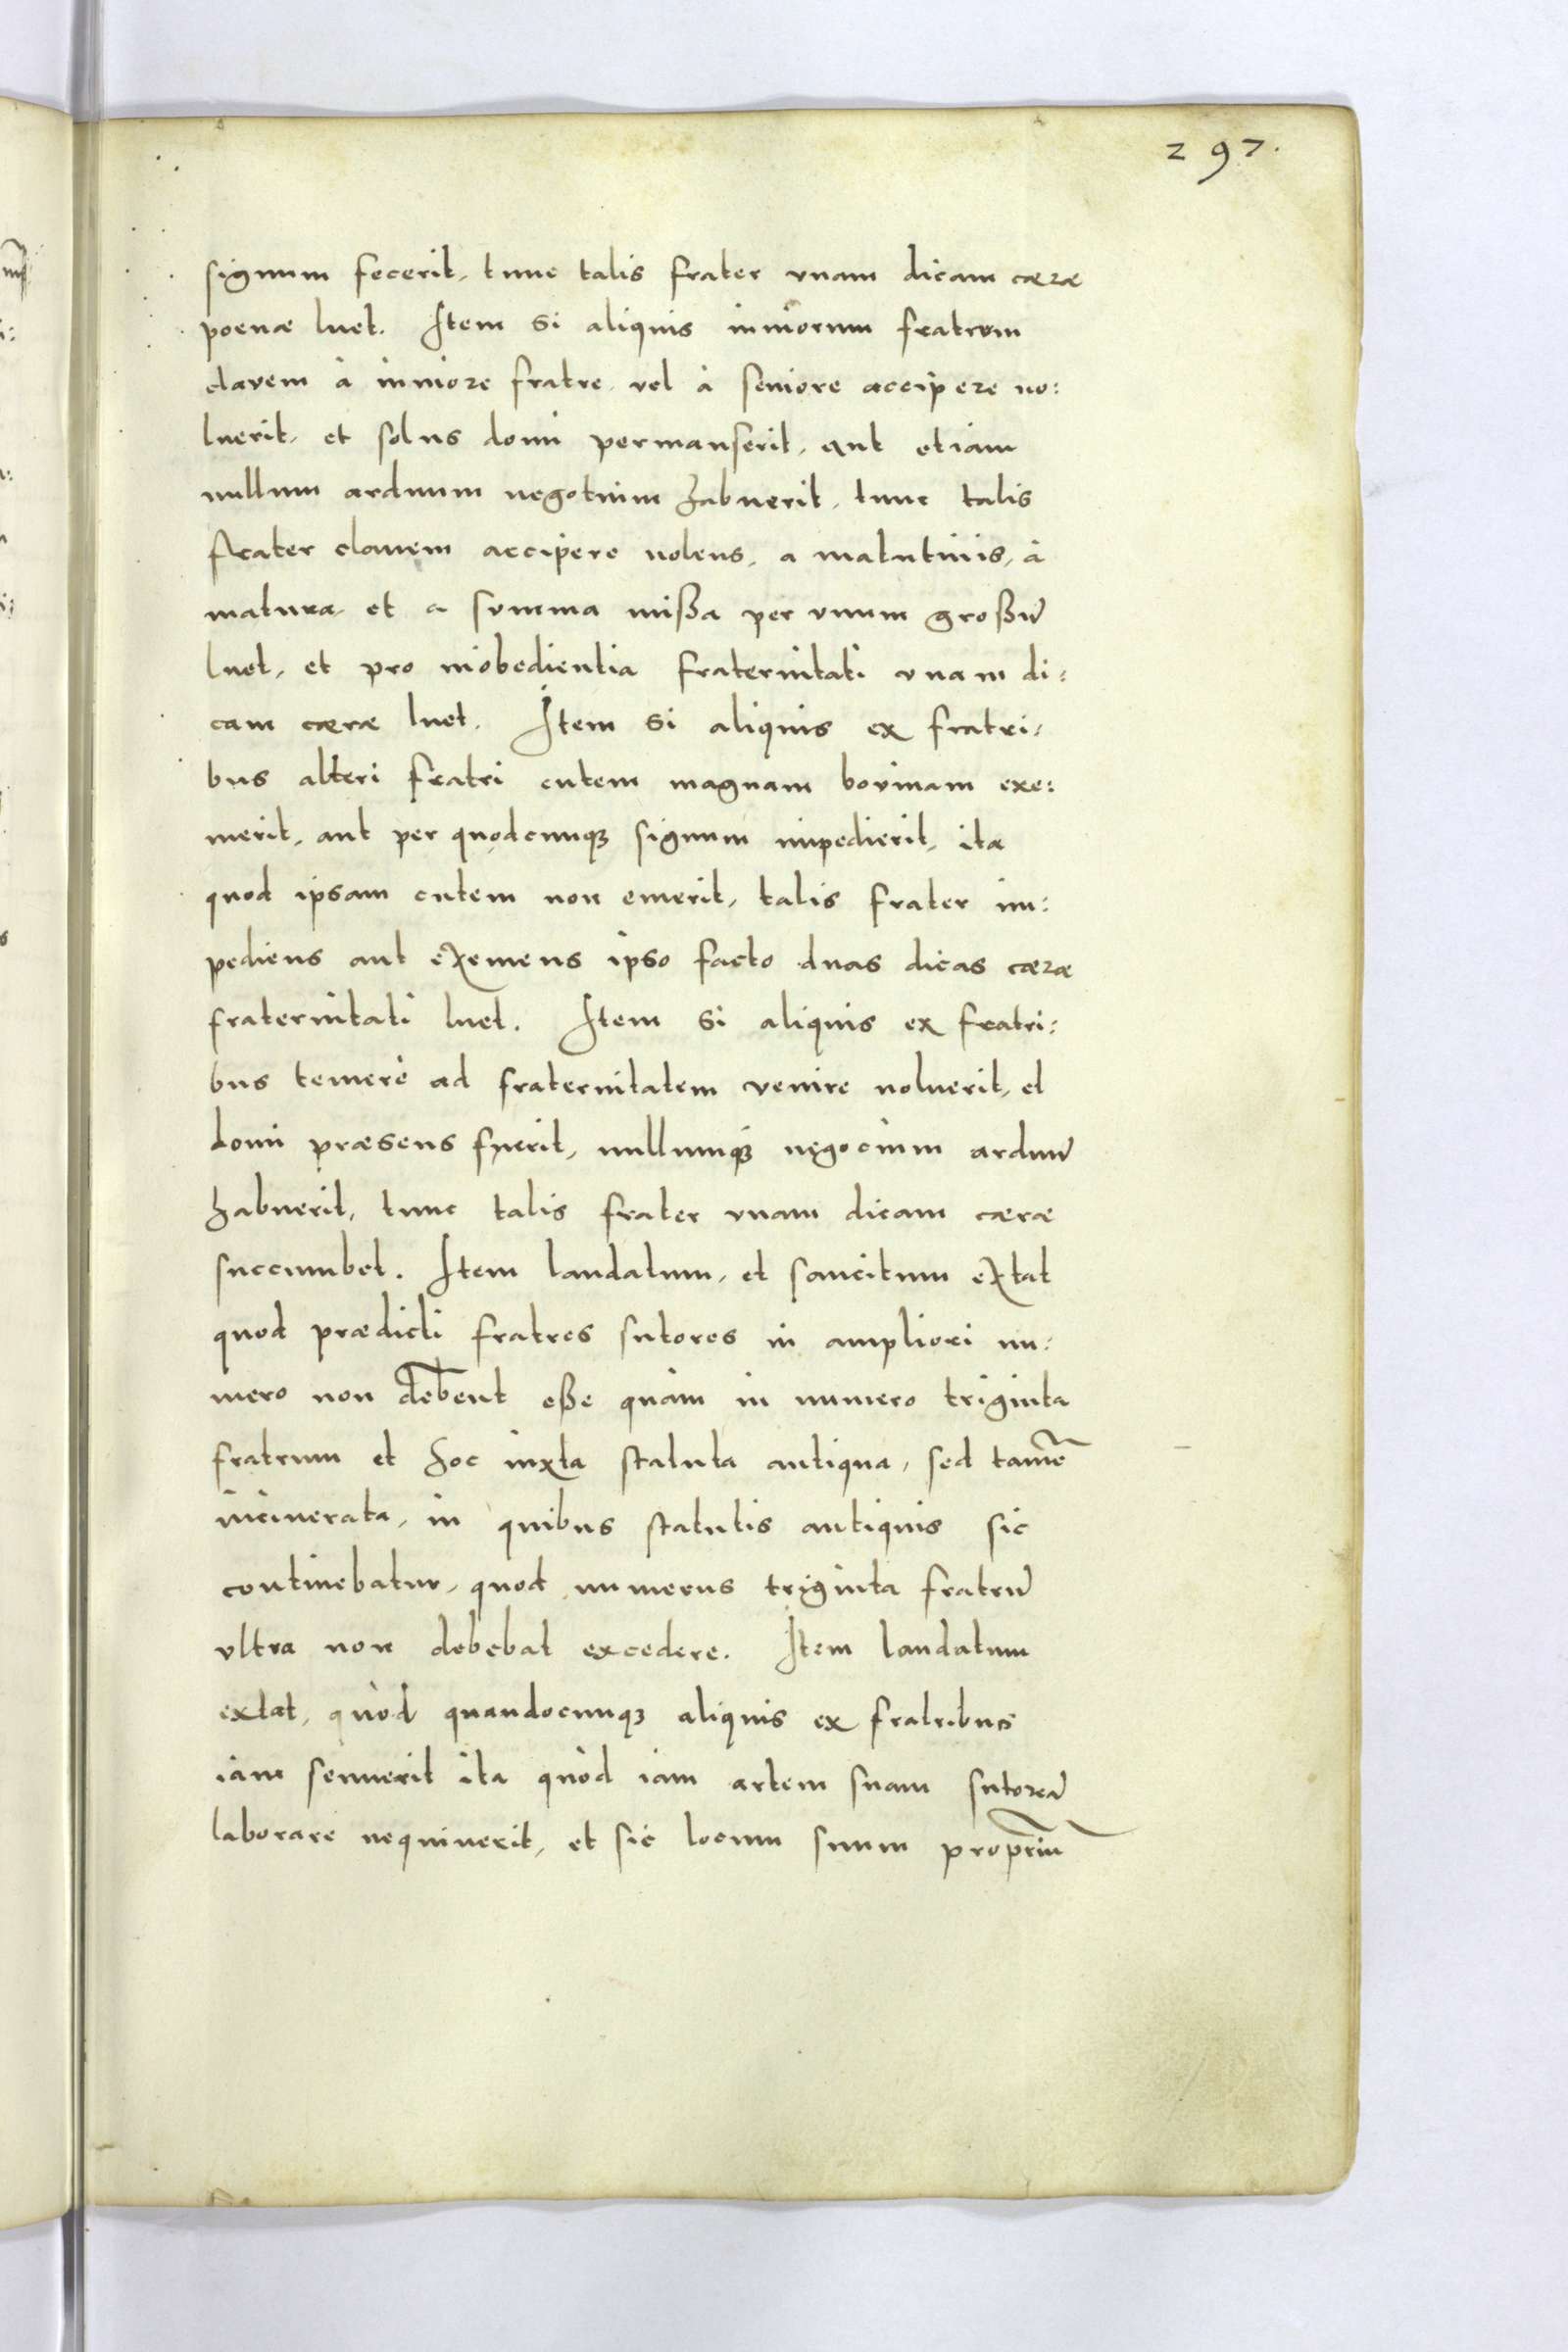 297.
signum fecerit, tunc talis frater vnam dicam cæræ
poenæ luet. Item si aliquis iuniorum fratrum
clavem à iuniore fratre vel à seniore accipere no:
luerit, et solus domi permanserit, aut etiam
nullum arduum negotium habuerit, tunc talis
frater clauem accipere nolens, a matutinis, à
matura, et a summa mißa per vnum großũ
luet, et pro inobedientia fraternitati vnam di:
cam cæræ luet. Item si aliquis ex fratri:
bus alteri fratri cutem magnam bovinam exe:
merit, aut per quodcunqꝫ signum impedierit, ita
quod ipsam cutem non emerit, talis frater im:
pediens aut exemens ipso facto duas dicas cæræ
fraternitati luet. Item si aliquis ex fratri:
bus temerè ad fraternitatem venire noluerit, et
domi præsens fuerit, nullumqꝫ negocium arduũ
habuerit, tunc talis frater vnam dicam cæræ
succumbet. Item laudatum, et sancitum extat
quod prædicti fratres sutores in ampliori nu:
mero non debent eße quàm in numero triginta
fratrum et hoc iuxta statuta antiqua, sed tamẽ
incinerata, in quibus statutis antiquis sic
continebatur, quod numerus triginta fratrũ
vltra non debebat excedere. Item laudatum
extat, quòd quandocunqꝫ aliquis ex fratribus
iam senuerit ita quòd iam artem suam sutoreã
laborare nequiuerit, et sic locum suum propriũ